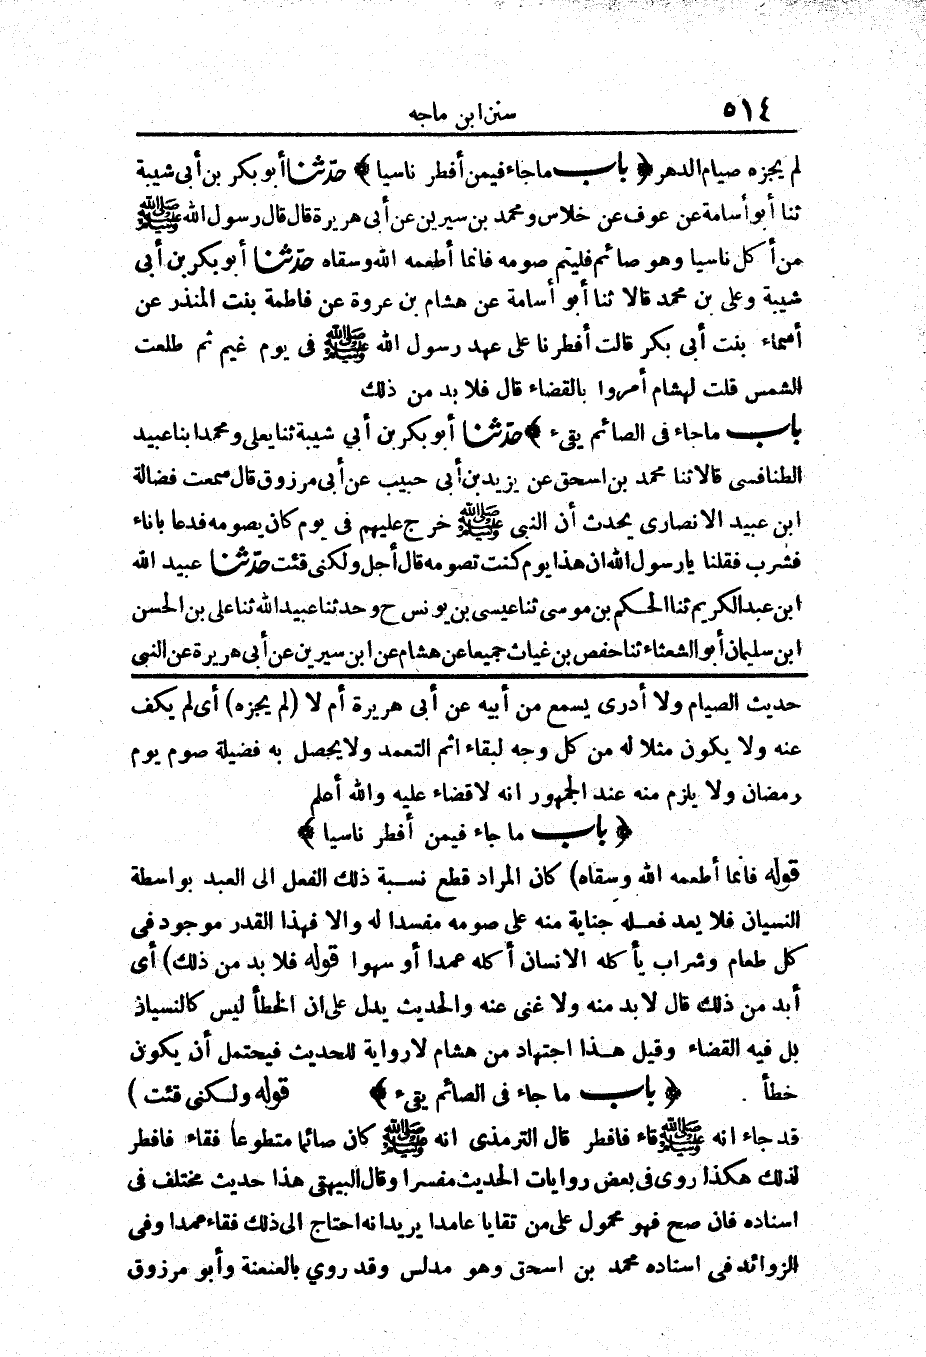 ٥١٤ سنن ابن ماجه
لم يجزه صيام الدهر ﴿ باب ماجاء فيمن أفطر ناسيا ﴾ حدّثنا أبو بكر بن أبى شيبة
ثنا أبو أسامة عن عوف عن خلاس ومحمد بن سيرين عن أبى هريرة قال قال رسول الله ﷺ
من أكل ناسيا وهو صائم فليتم صومه فانما أطعمه الله وسقاه حدّثنا أبو بكر بن أبى
شيبة وعلى بن محمد قالا ثنا أبو أسامة عن هشام بن عروة عن فاطمة بنت المنذر عن
أسماء بنت أبى بكر قالت أفطرنا على عهد رسول الله ﷺ فى يوم غيم ثم طلعت
الشمس قلت لهشام أمروا بالقضاء قال فلا بد من ذلك
باب ماجاء فى الصائم يقىء ﴾ حدّثنا أبو بكر بن أبي شيبة ثنا يعلى ومحمدا بنا عبيد
الطنافسى قالا ثنا محمد بن اسحق عن يزيد بن أبى حبيب عن أبى مرزوق قال سمعت فضالة
ابن عبيد الانصارى يحدث أن النبى ﷺ خرج عليهم فى يوم كان يصومه فدعا باناء
فشرب فقلنا يارسول الله ان هذا يوم كنت تصومه قال أجل ولكنى قئت حدّثنا عبيد الله
ابن عبد الكريم ثنا الحكم بن موسى ثنا عيسى بن يونس ح وحدثنا عبيد الله ثنا على بن الحسن
ابن سليمان أبو الشعثاء ثنا حفص بن غياث جميعا عن هشام عن ابن سيرين عن أبى هريرة عن النبى
حديث الصيام ولا أدرى يسمع من أبيه عن أبى هريرة أم لا (لم يجزه) أى لم يكف
عنه ولا يكون مثلا له من كل وجه لبقاء اثم التعمد ولا يحصل به فضيلة صوم يوم
رمضان ولا يلزم منه عند الجمهور انه لاقضاء عليه والله أعلم
﴿ باب ما جاء فيمن أفطر ناسيا ﴾
قوله فانما أطعمه الله وسقاه) كان المراد قطع نسبة ذلك الفعل الى العبد بواسطة
النسيان فلا يعد فعله جناية منه على صومه مفسدا له والا فهذا القدر موجود فى
كل طعام وشراب يأكله الانسان أكله عمدا أو سهوا قوله فلا بد من ذلك) أى
أبد من ذلك قال لا بد منه ولا غنى عنه والحديث يدل على ان الخطأ ليس كالنسيان
بل فيه القضاء وقيل هذا اجتهاد من هشام لا رواية للحديث فيحتمل أن يكون
خطأ . ﴿ باب ما جاء فى الصائم يقىء ﴾ قوله ولكنى قئت )
قد جاء انه ﷺ قاء فافطر قال الترمذى انه ﷺ كان صائما متطوعا فقاء فافطر
لذلك هكذا روى فى بعض روايات الحديث مفسرا وقال البيهقى هذا حديث مختلف فى
اسناده فان صح فهو محمول على من تقايا عامدا يريد انه احتاج الى ذلك فقاء عمدا وفى
الزوائد فى اسناده محمد بن اسحق وهو مدلس وقد روي بالعنعنة وأبو مرزوق